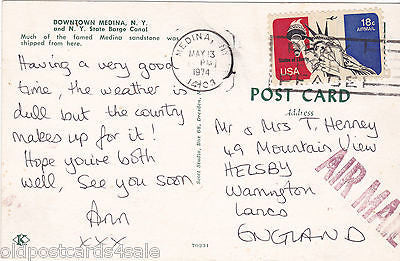 DOWNTOWN MEDINA, N. Y.
and N. Y. State Barge Canal
Much of the famed Medina sandstone was
shipped from here.
Having a very good
time, the weather is
dull but the country
makes up for it!
Hope you're both
well, See you soon
Ann
XXX
K
Scott Studio, Box 68, Dresden,
70231
MEDINA, NY
MAY 13
PM
1974
14103
18c
AIRMAIL
USA
POST CARD
Address
Mr & Mrs T. Henney
49 Mountain View
HELSBY
Warrington
Lancs
ENGLAND
AIR MAIL
oldpostcards4sale
oldpostcards4sale@outlook.com